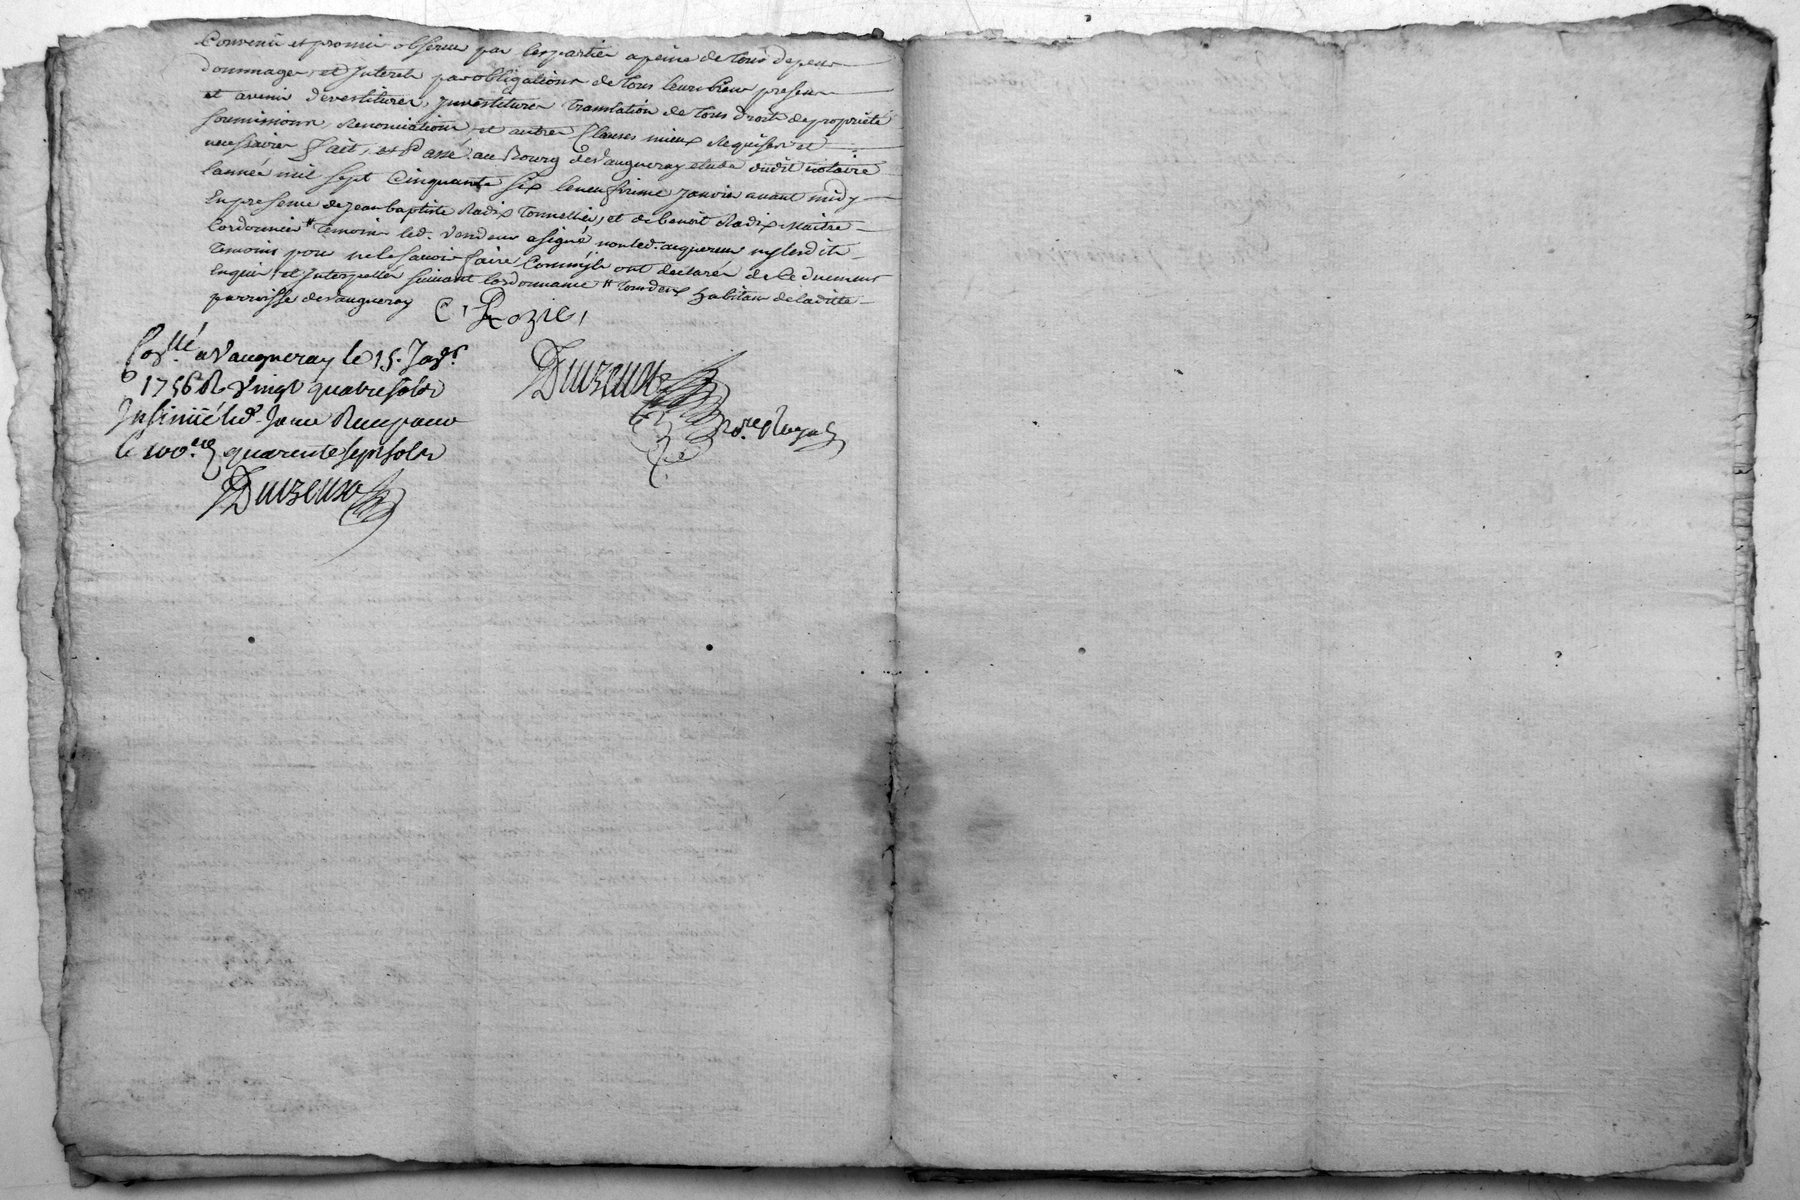 Convenû et promis observer par les parties a peine de tous depens
dommages, et Interets par obligations de tous leurs biens presens
et avenir devestitures, Jnvestitures translation de tous droits de propriété
soumissions, Renonciations et autres Clauses mieux Requises et
necessaires fait, et Passé au Bourg de Vaugneray etude dudit notaire
l'année mil sept Cinquante six le neufvieme Janvier avant midy
En presence de Jean baptiste Radix Tonnellier, et de benoit Radix Maitre
Cordonnier # Temoins led. Vendeur a signé non led. acquereur ny lesdits
temoins pour ne le savoir faire Comm'ils ont declarés de ce duement
Enquis et Interpellés suivant l'ordonnance # tous deux habitans de laditte
parroisse de Vaugneray
C. Rozier
Con.llé a Vaugneray le 15. Janv.
1756 R. Vingt quatre sols
Insinué led. Jour Reçu pour
le 100.e quarente sept sols
Duvzeur
No.re Royal